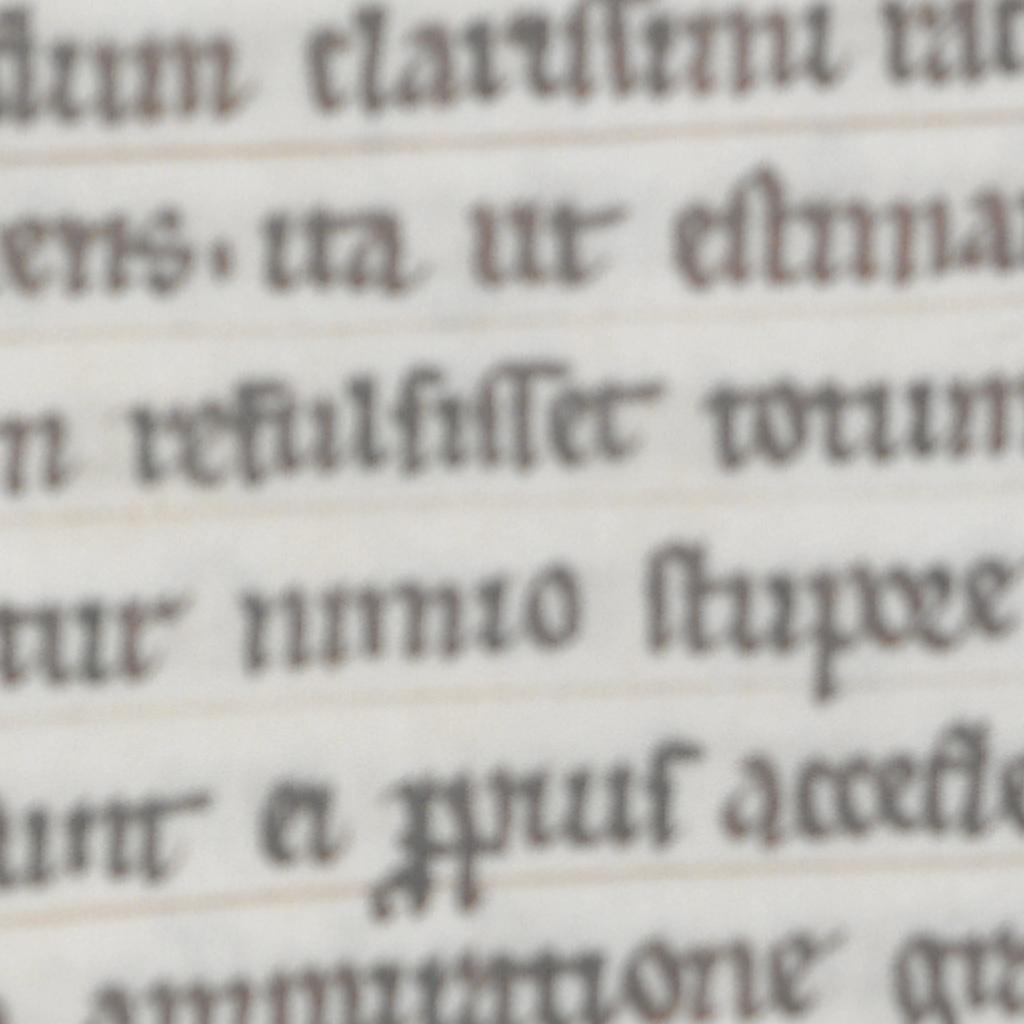 dum clariſſimi rat
ens. ita ut eſtima
n refulſiſſet totum
tur nimio ſtupore
unt ei ꝓpiuſ acceſſ
ammiratione